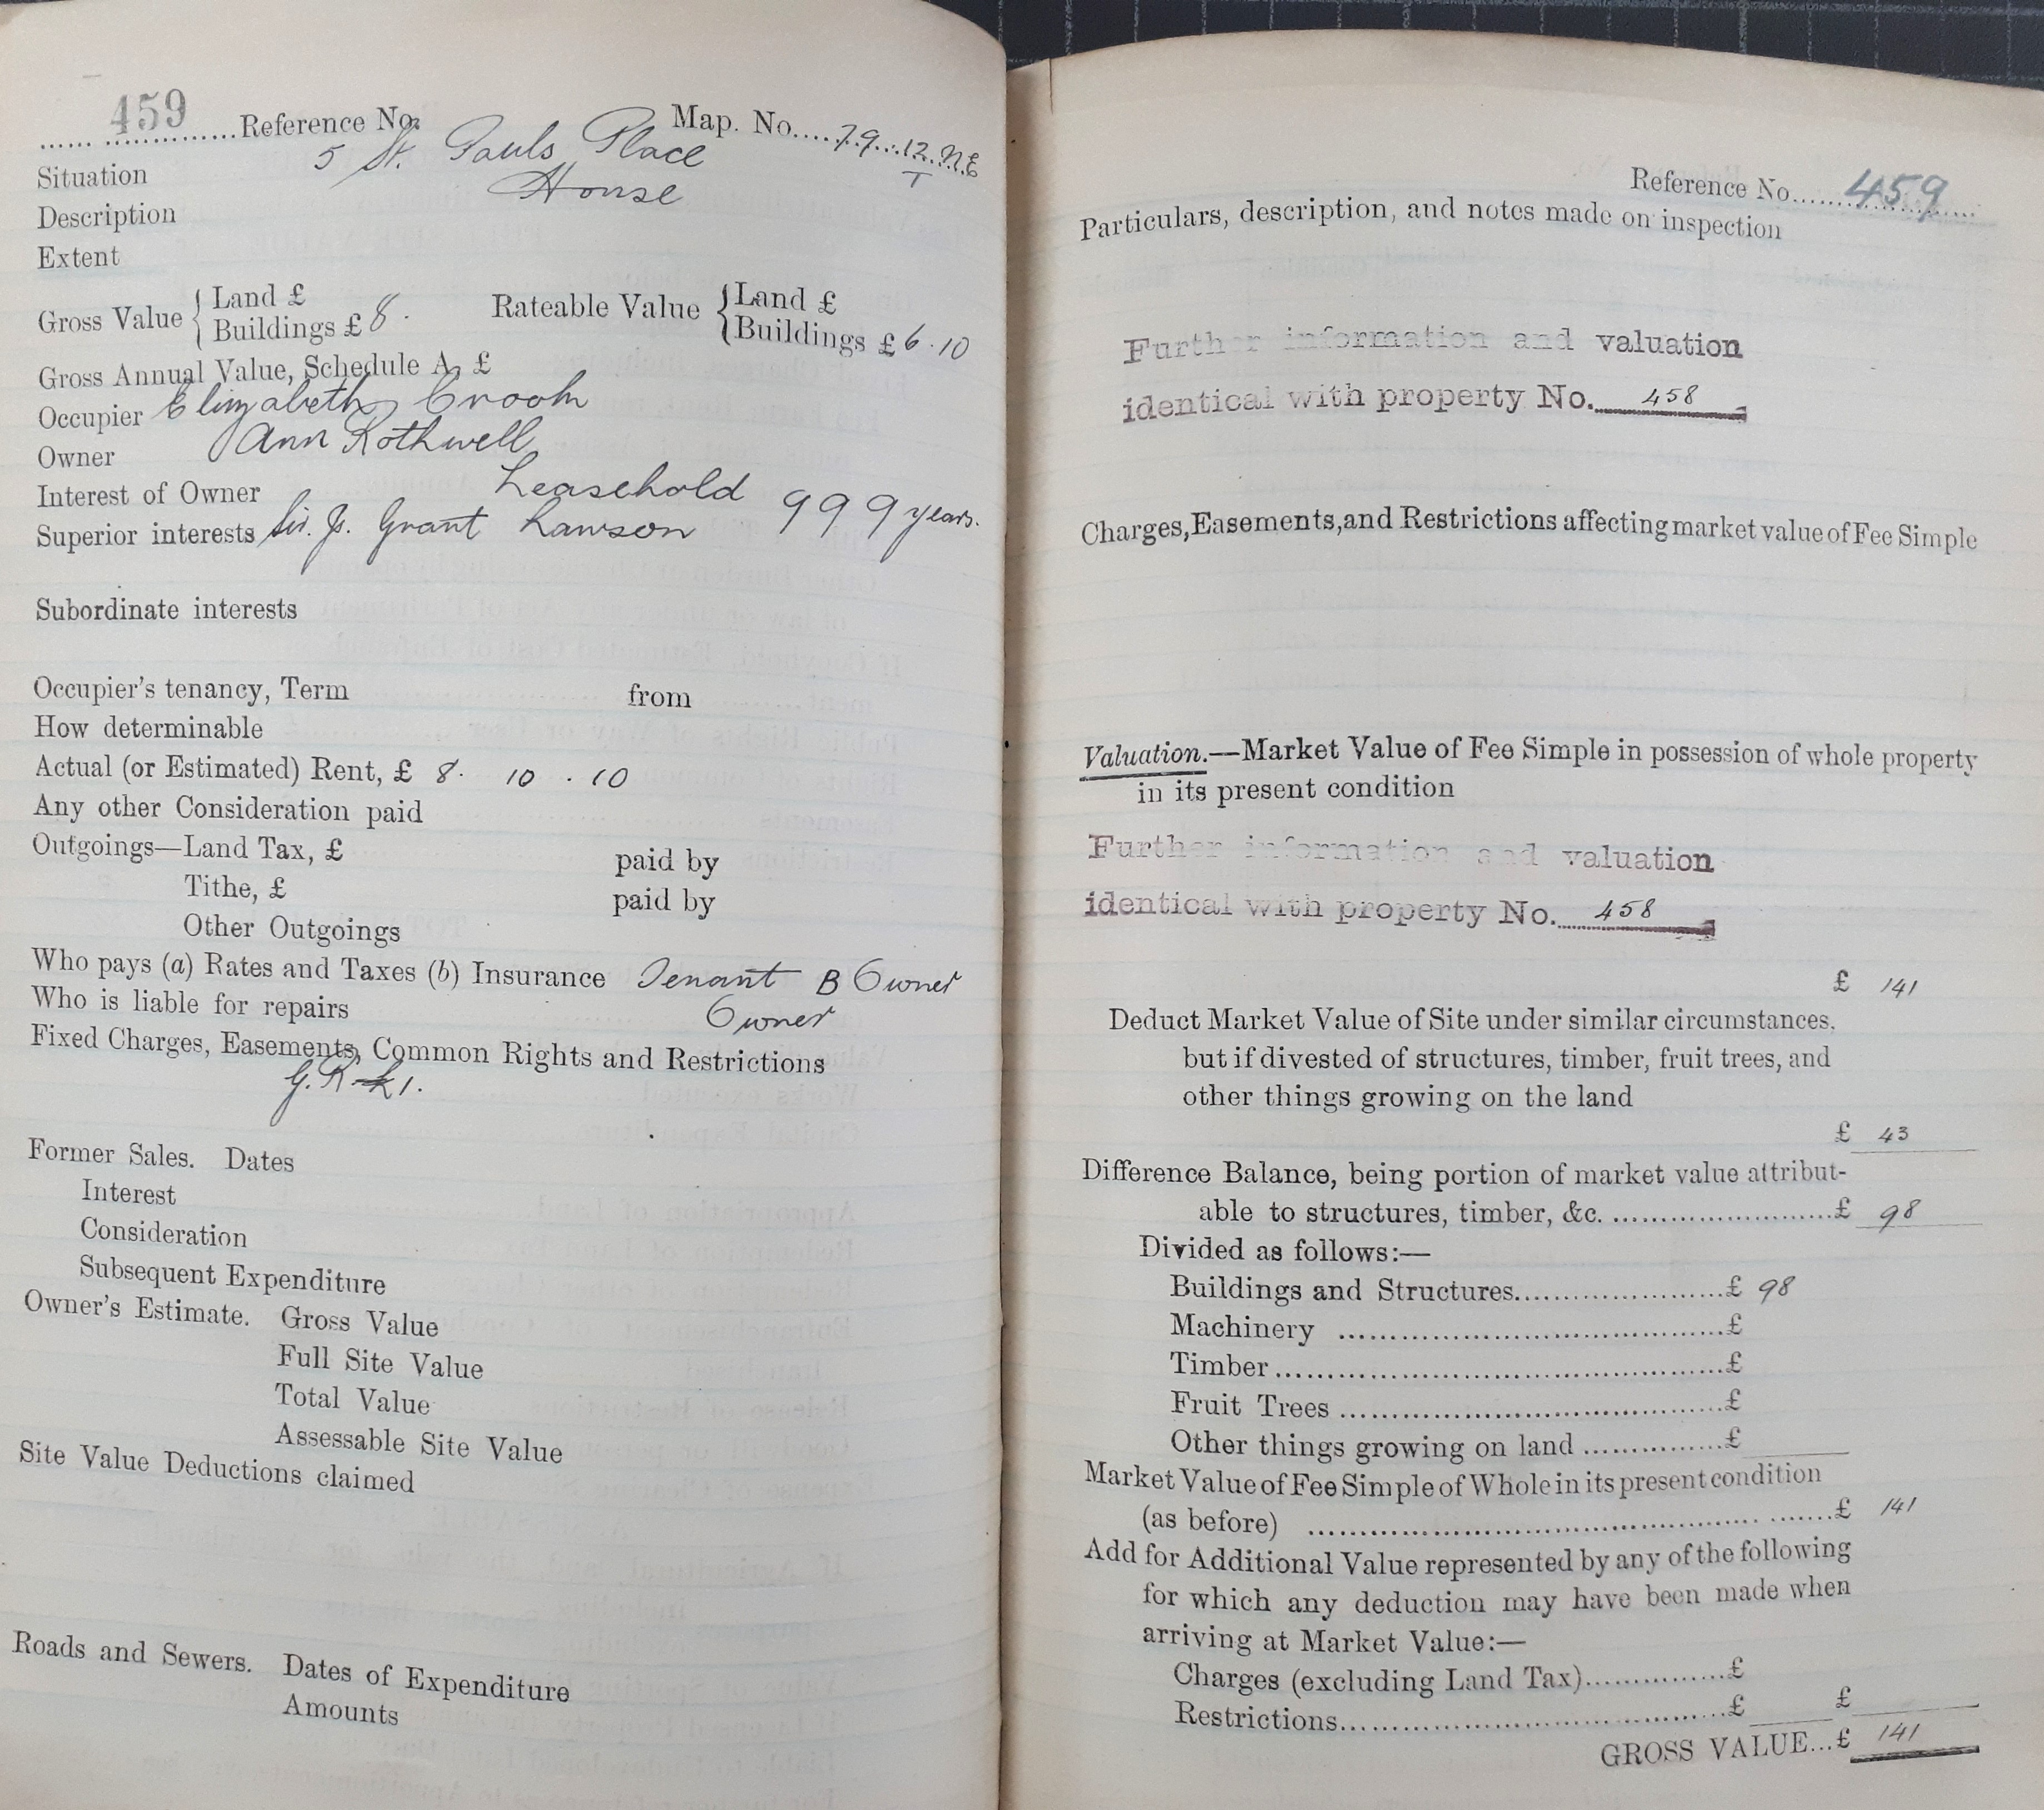 459 Reference No. Map. No. 79.12.NE
T
Situation 5 St. Pauls Place
Description House
Extent
Gross Value { Land £
Buildings £ 8. Rateable Value { Land £
Buildings £ 6.10
Gross Annual Value, Schedule A, £
Occupier Elizabeth Crook
Owner Ann Rothwell
Interest of Owner Leasehold 999 years.
Superior interests Sir. J. Grant Lawson
Subordinate interests
Occupier's tenancy, Term from
How determinable
Actual (or Estimated) Rent, £ 8. 10. 10
Any other Consideration paid
Outgoings—Land Tax, £ paid by
Tithe, £ paid by
Other Outgoings
Who pays (a) Rates and Taxes (b) Insurance Tenant B Owner
Who is liable for repairs Owner
Fixed Charges, Easements, Common Rights and Restrictions
G.R. £1.
Former Sales. Dates
Interest
Consideration
Subsequent Expenditure
Owner's Estimate. Gross Value
Full Site Value
Total Value
Assessable Site Value
Site Value Deductions claimed
Roads and Sewers. Dates of Expenditure
Amounts
Reference No. 459
Particulars, description, and notes made on inspection
Further information and valuation
identical with property No. 458
Charges, Easements, and Restrictions affecting market value of Fee Simple
Valuation.—Market Value of Fee Simple in possession of whole property
in its present condition
Further information and valuation
identical with property No. 458
£ 141
Deduct Market Value of Site under similar circumstances,
but if divested of structures, timber, fruit trees, and
other things growing on the land
£ 43
Difference Balance, being portion of market value attribut-
able to structures, timber, &c. £ 98
Divided as follows:—
Buildings and Structures £ 98
Machinery £
Timber £
Fruit Trees £
Other things growing on land £
Market Value of Fee Simple of Whole in its present condition
(as before) £ 141
Add for Additional Value represented by any of the following
for which any deduction may have been made when
arriving at Market Value:—
Charges (excluding Land Tax) £
Restrictions £ £
GROSS VALUE...£ 141